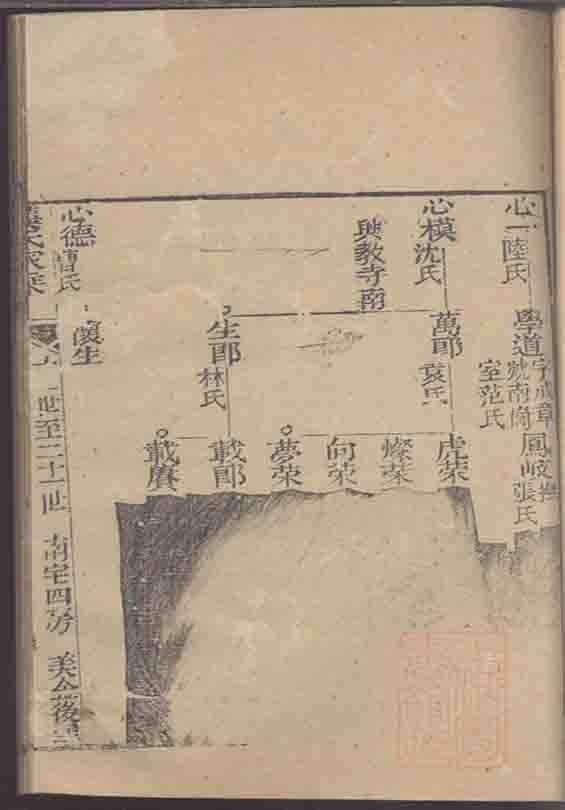 心一 陸氏
學道 字成章
號南崗
室范氏
鳳岐
張氏
心模 沈氏
興教寺南
萬郎 袁氏
虎荣
燦荣
向荣
夢荣
生郎 林氏
載郎
載賡
心德 曹氏
世至二十一世 南宅四房 美公後